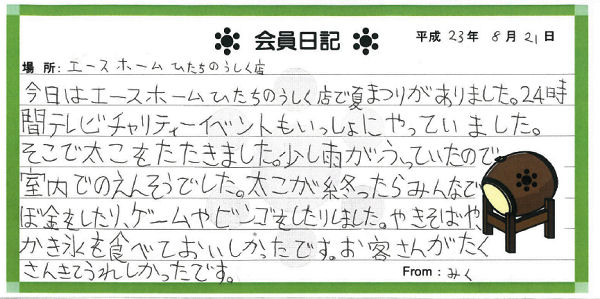 会員日記
平成 23年 8月 21日
場所: エースホームひたちのうしく店
今日はエースホームひたちのうしく店で夏まつりがありました。24時
間テレビチャリティーイベントもいっしょにやっていました。
そこで太こをたたきました。少し雨がふっていたので
室内でのえんそうでした。太こが終ったらみんなで
ぼ金をしたり、ゲームやビンゴをしたりしました。やきそばや、
かき氷を食べておいしかったです。お客さんがたく
さんきてうれしかったです。
From: みく